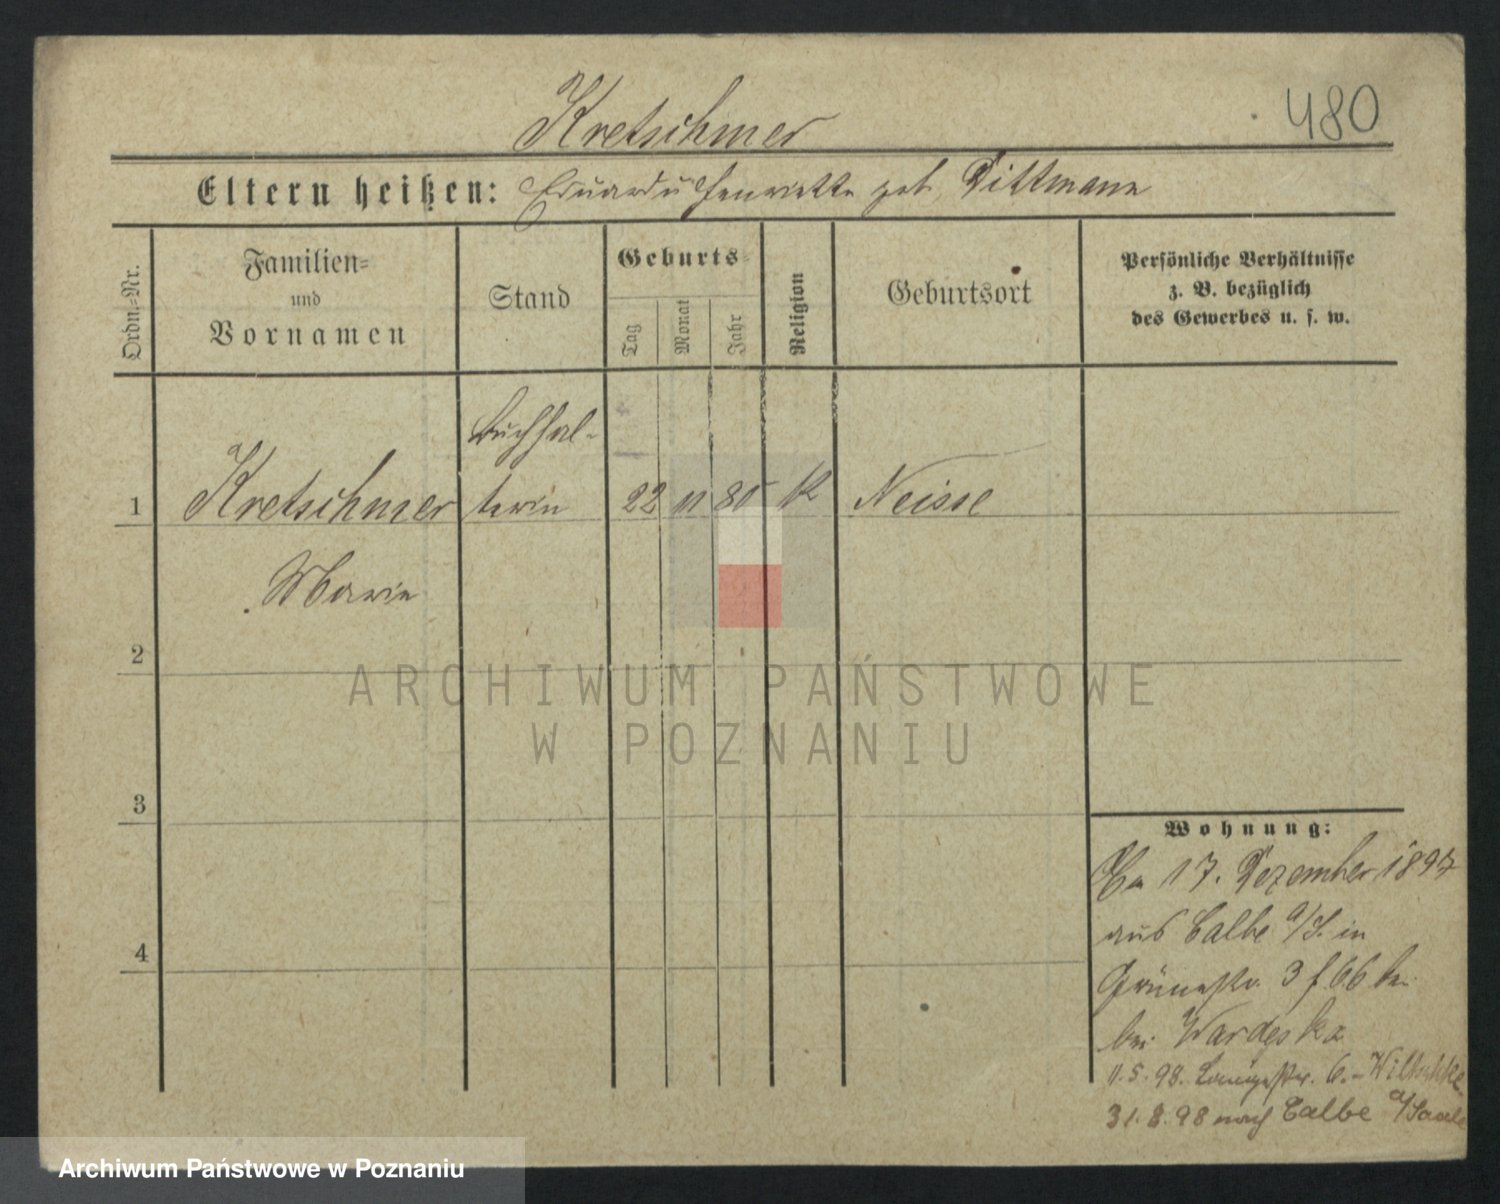 480
Kretschmer
Eltern heißen: Eduard u Henriette geb. Dittmann
Ordn.-Nr.
Familien-
und
Vornamen
Stand
Geburts-
Tag
Monat
Jahr
Religion
Geburtsort
Persönliche Verhältnisse
z. B. bezüglich
des Gewerbes u. s. w.
Buchhal-
1 Kretschmer terin 22 11 80 k Neisse
Marie
2
3
4
Wohnung:
17. Dezember 1897
aus Calbe a/S. in
Grünestr. 3
bei Wardeska
11.5.98. Langestr. 6.
31.8.98 nach Calbe a/Saale
ARCHIWUM PAŃSTWOWE
W POZNANIU
Archiwum Państwowe w Poznaniu